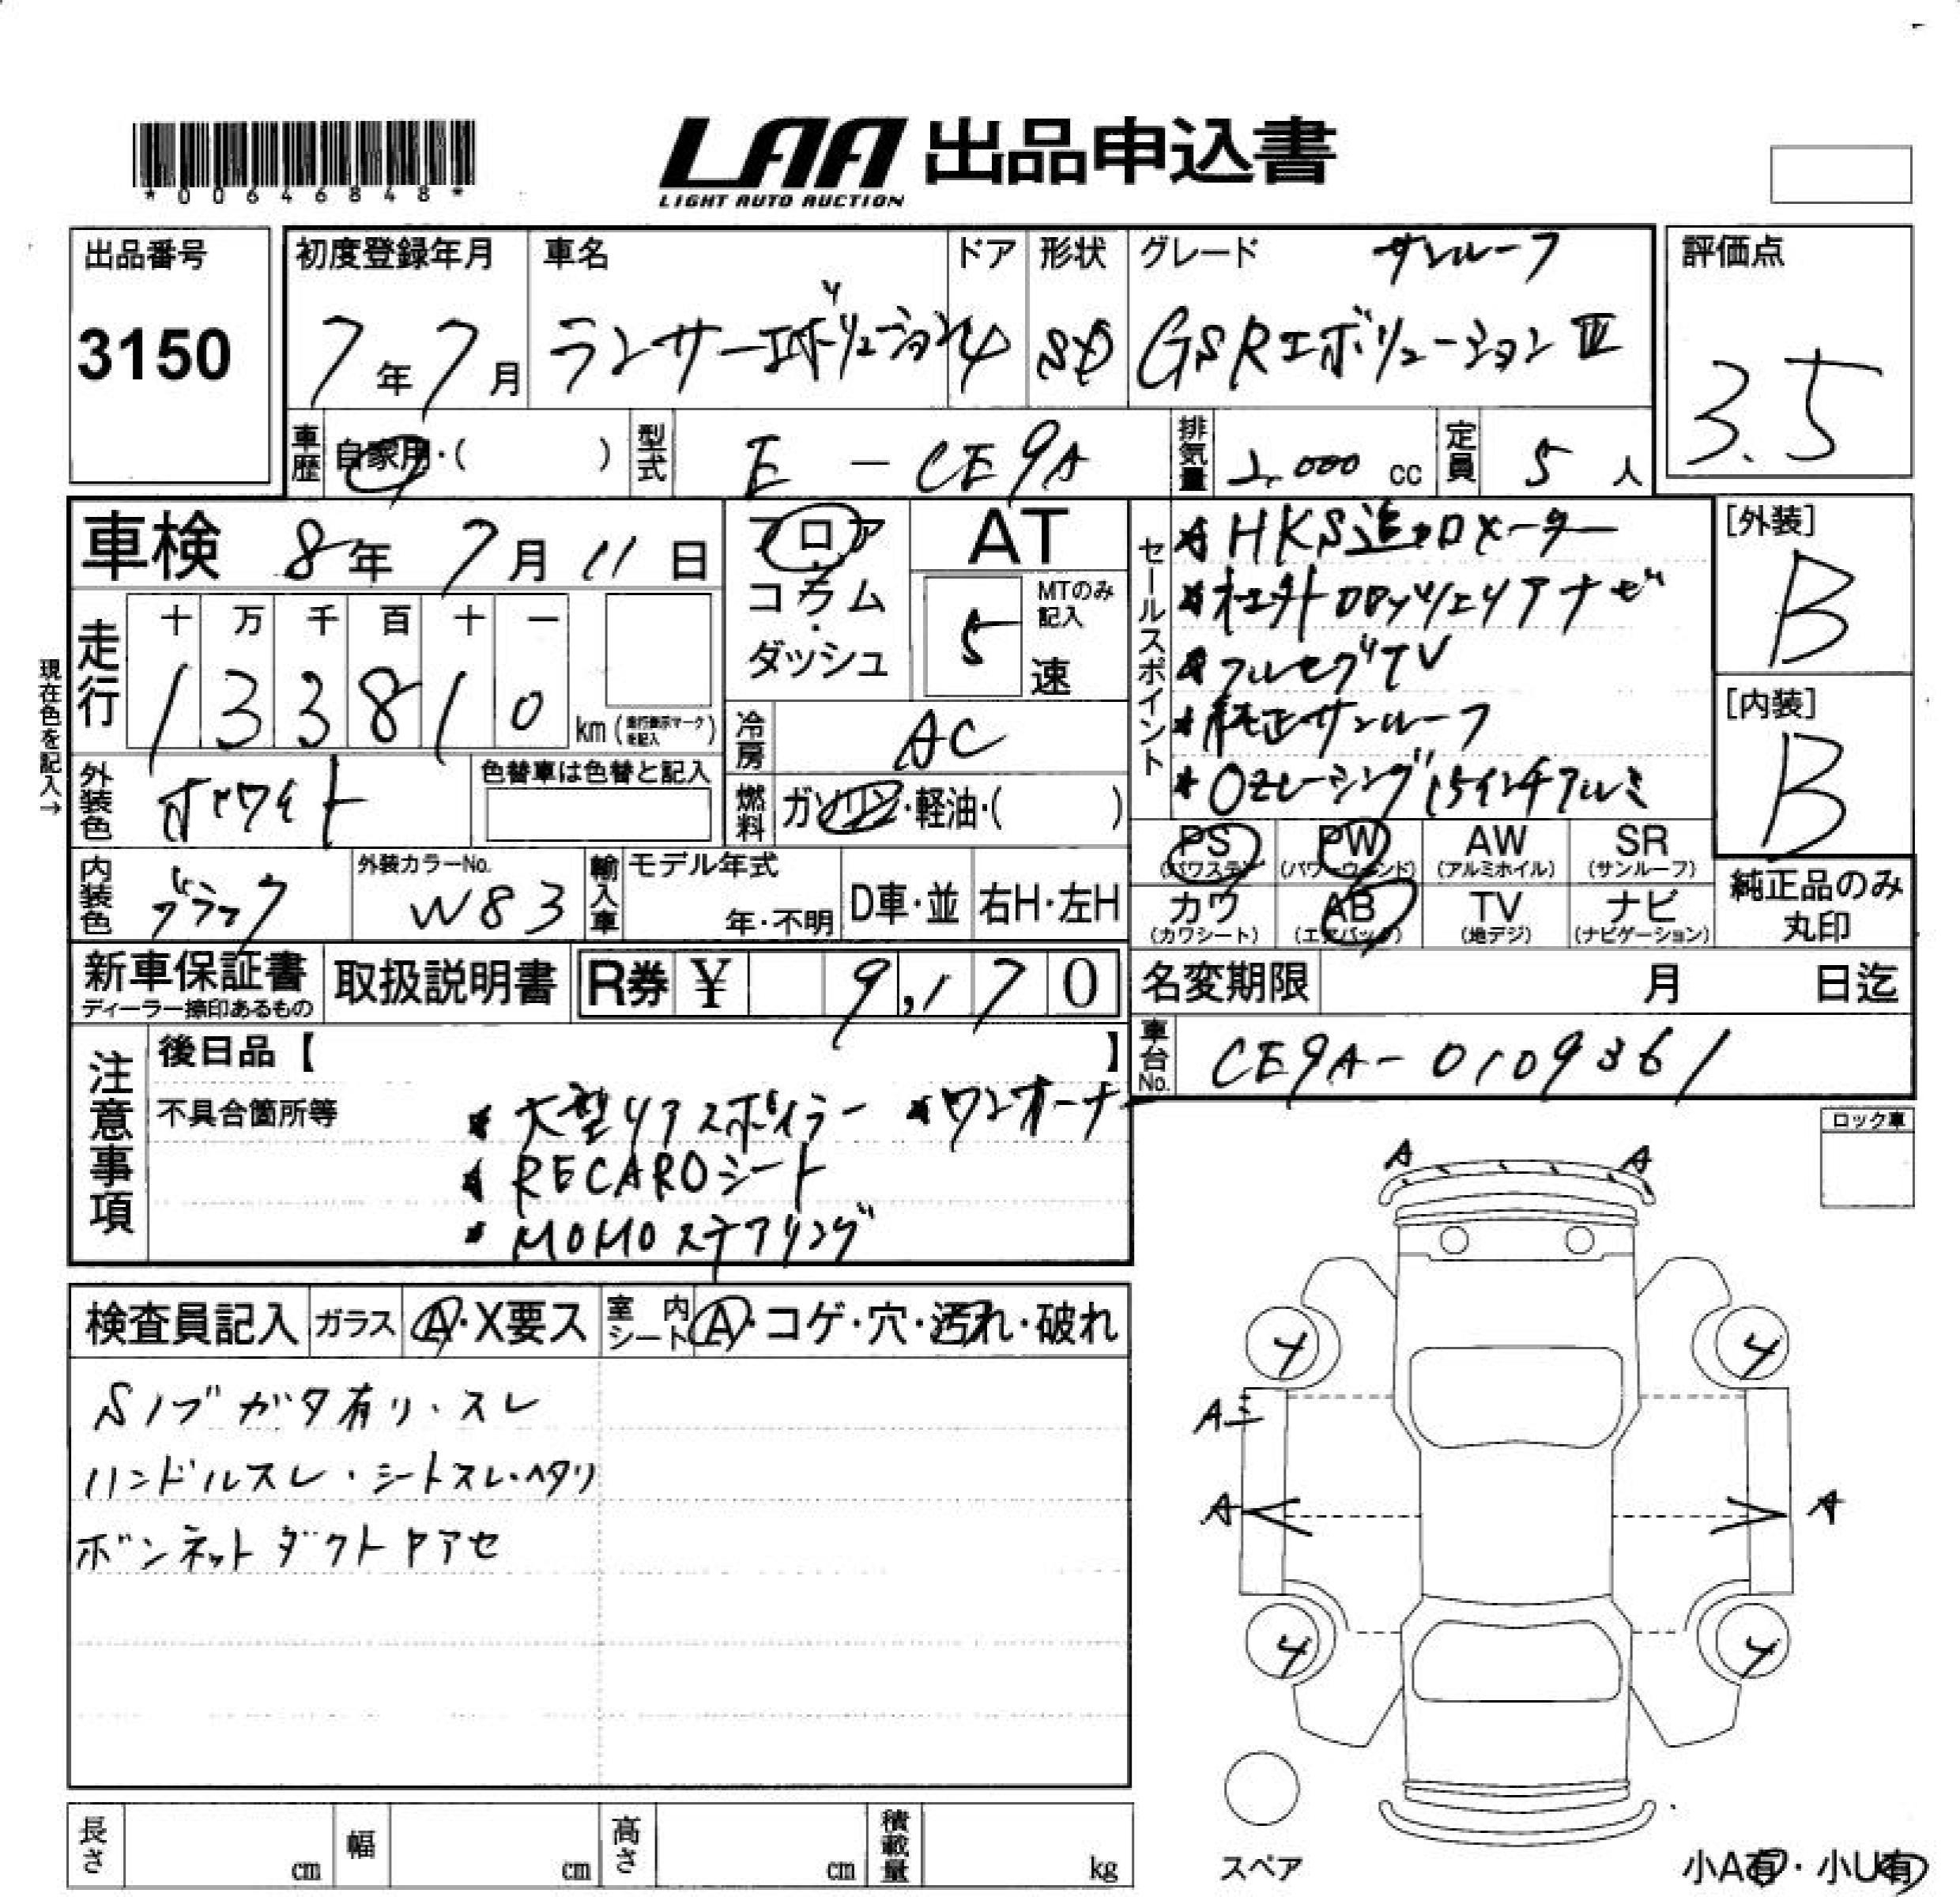 *00646848*
LAA 出品申込書
LIGHT AUTO AUCTION
出品番号
3150
初度登録年月
7年7月
車名
ランサーエボリューション
ドア
4
形状
SD
グレード
サンルーフ
GSRエボリューションⅢ
評価点
3.5
車歴
自家用・( )
型式
E-CE9A
排気量
2,000 cc
定員
5人
車検 8年7月11日
フロア
コラム
・
ダッシュ
AT
MTのみ記入
5速
セールスポイント
★HKS追加メーター
★社外 ナビ
★フルセグTV
★純正サンルーフ
★OZレーシング15インチアルミ
[外装]
B
[内装]
B
現在色を記入→
走行
十 万 千 百 十 一
1 3 3 8 1 0
km (走行表示マークを記入)
冷房
AC
外装色
ホワイト
色替車は色替と記入
燃料
ガソリン・軽油・( )
PS
(パワステ)
PW
(パワーウィンド)
AW
(アルミホイル)
SR
(サンルーフ)
内装色
ブラック
外装カラーNo.
W83
輸入車
モデル年式
年・不明
D車・並
右H・左H
カワ
(カワシート)
AB
(エアバッグ)
TV
(地デジ)
ナビ
(ナビゲーション)
純正品のみ
丸印
新車保証書
ディーラー捺印あるもの
取扱説明書
R券 ¥ 9,170
名変期限 月 日迄
車台No.
CE9A-0109361
注意事項
後日品【 】
不具合箇所等
★大型リアスポイラー ★ワンオーナー
★RECAROシート
★MOMOステアリング
ロック車
検査員記入
ガラス
A・X要ス
室内シート
A・コゲ・穴・汚れ・破れ
Sノブガタ有り・スレ
ハンドルスレ・シートスレ・ヘタリ
ボンネットダクトアセ
A A
4 4
A
A A
4 4
スペア
小A有・小U有
長さ cm
幅 cm
高さ cm
積載量 kg